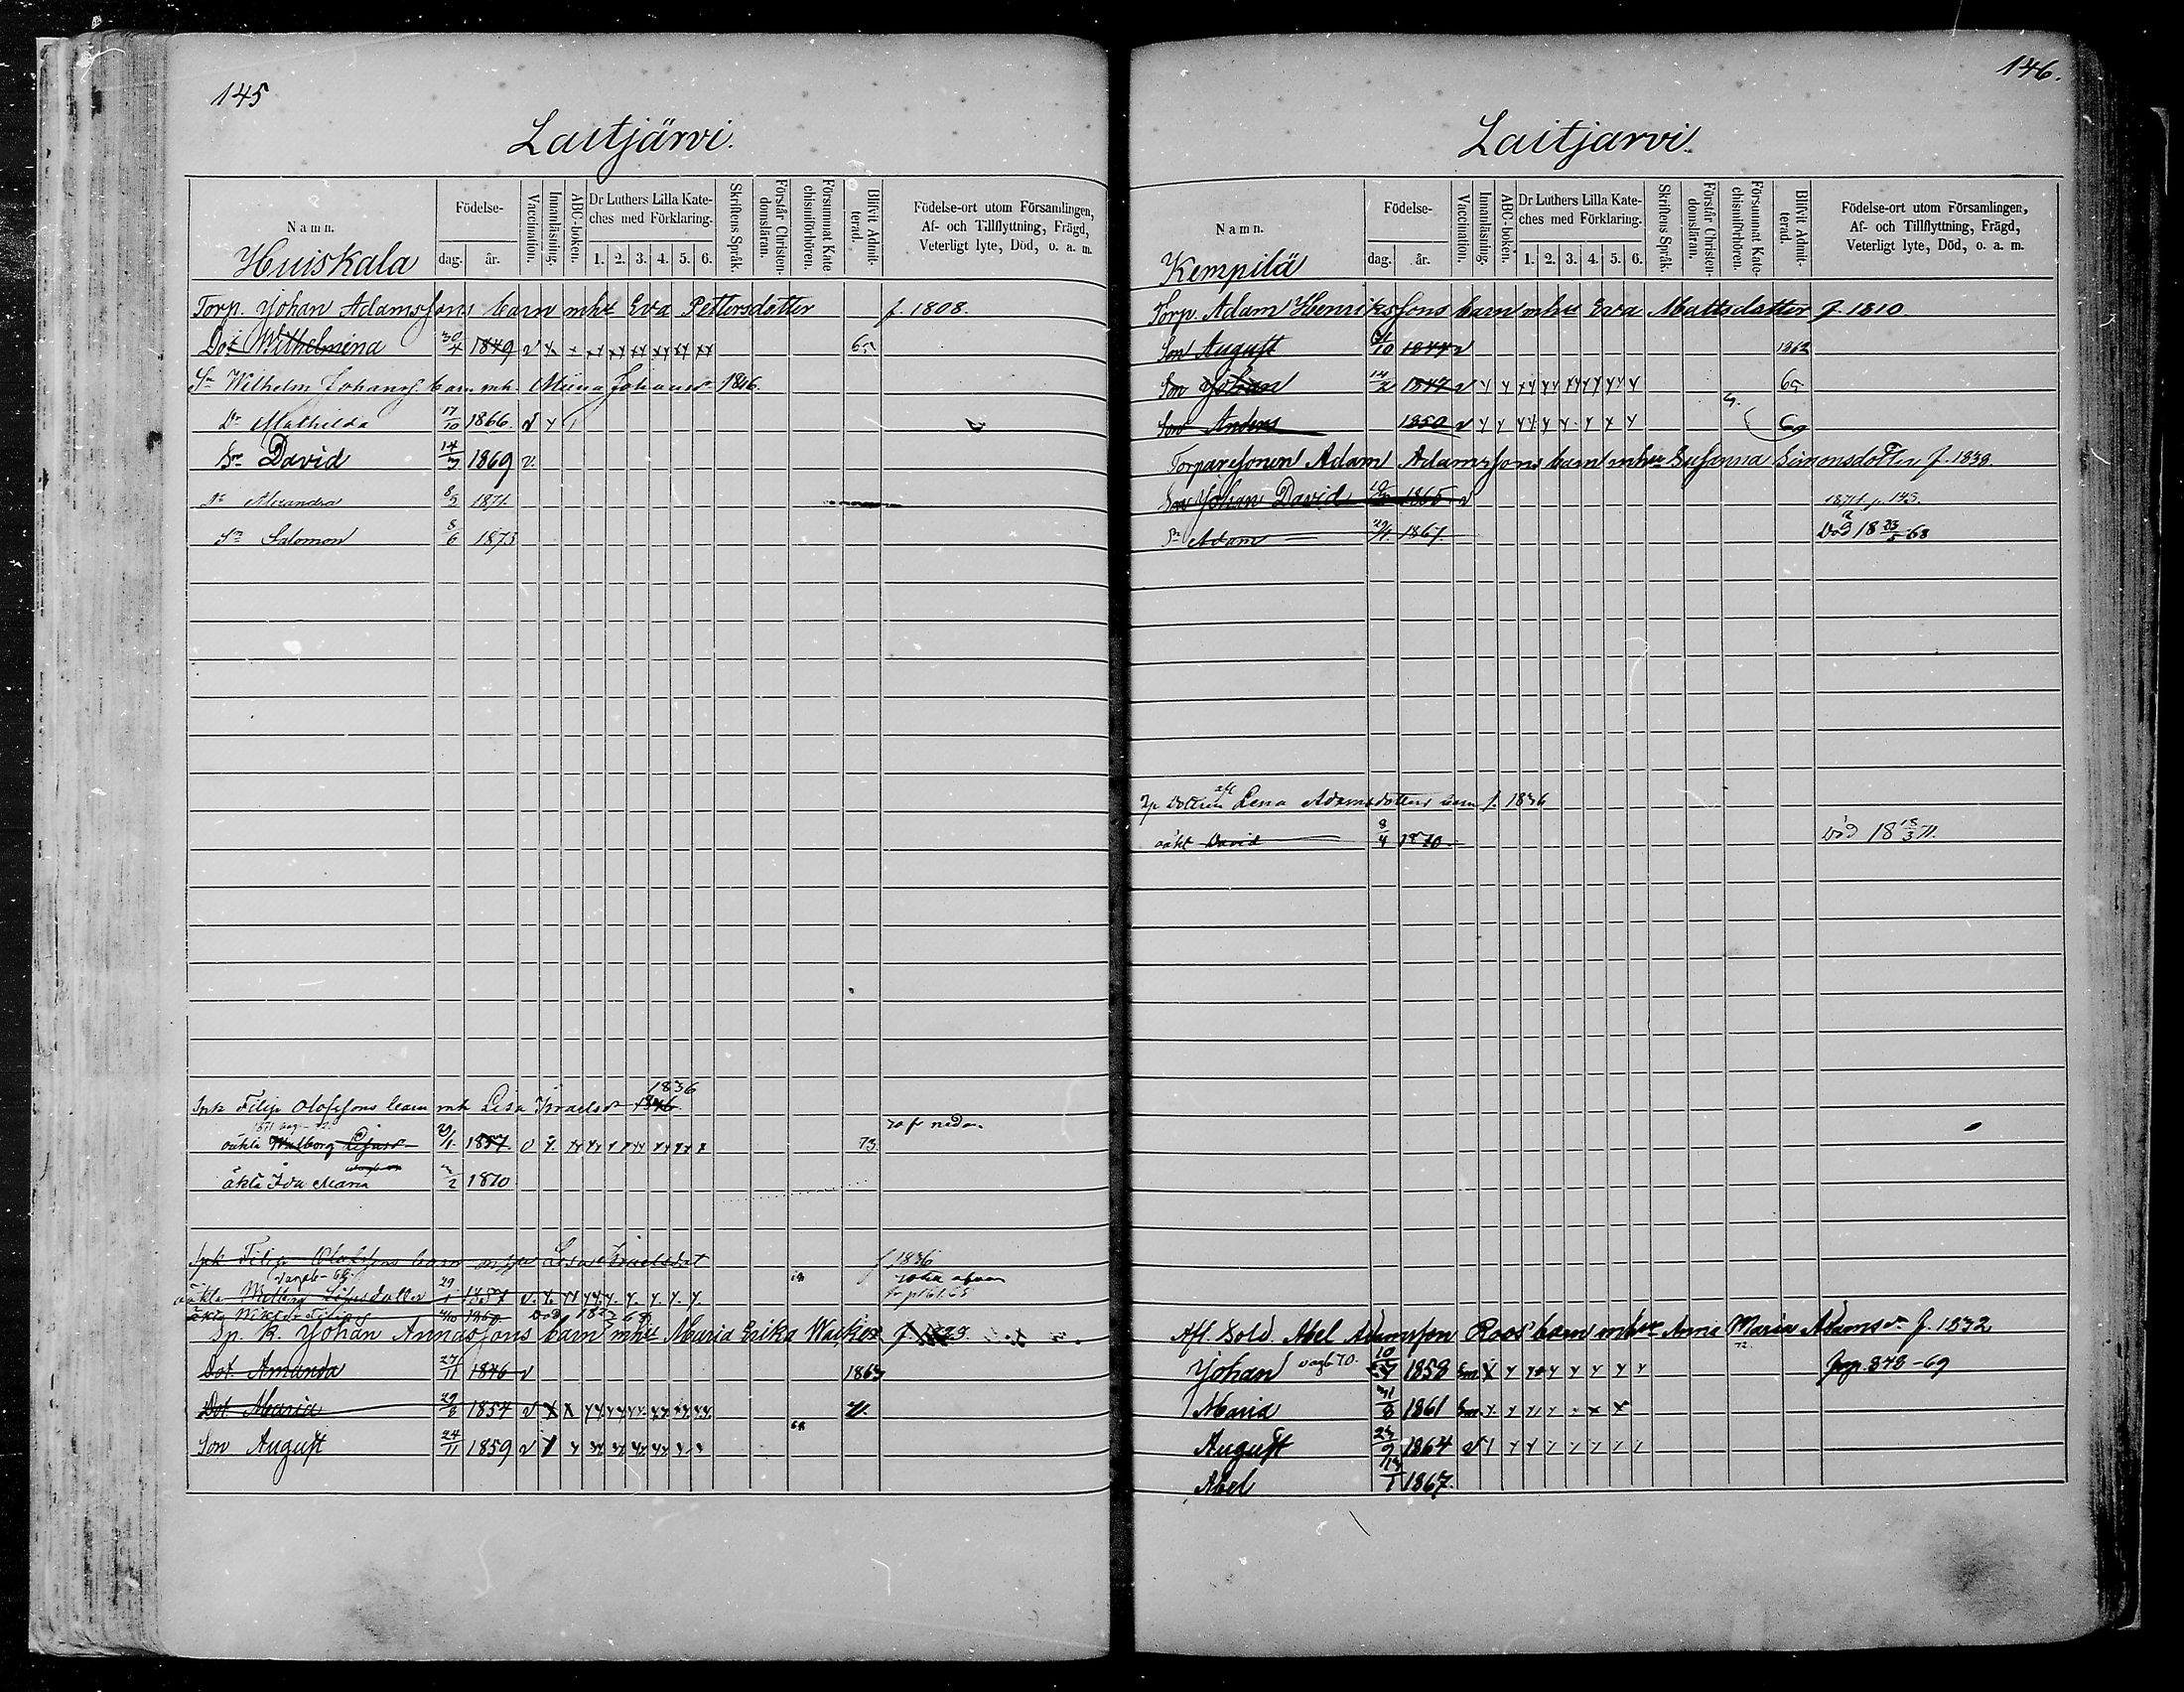 145
Laitjärvi.
Namn.
Huiskala
Födelse-
dag. år.
Vaccination.
Innanläsning.
ABC-boken.
Dr Luthers Lilla Kate-
ches med Förklaring.
1. 2. 3. 4. 5. 6.
Skriftens Språk.
Förstår Christen-
domsläran.
Försummat Kate
chismiförhören.
Blifvit Admit-
terad.
Födelse-ort utom Församlingen,
Af- och Tillflyttning, Frägd,
Veterligt lyte, Död, o. a. m.
Torp. Johan Adamssons barn mhu Eva Pettersdotter f. 1808.
Dot Wilhelmina 30/4 1849 v 65
Sn Wilhelm Johanss. barn mh. Miina Johansd 1846.
Dr Mathilda 17/10 1866 v
Sn David 14/3 1869 v.
Dr Alexandra 8/3 1871.
Sn Salomon 8/6 1873
1836
Filip Olofssons barn mh Lisa Israelsd 1846
oäkta Walborg Lisasd 29/1 1857. v 73
äkta Ida Maria 2 1870
Filip Olofssons barn Lisa Israelsdot f 1836
oäkta Walborg Lisasdotter 29/1 1857 v.
äkta Wiktor Filips 1860 död
Sp. K. Johan Annassons barn mhu Maria Erika f
Dot Amanda 27/11 1846 v 1863
Dot Maria 29/8 1854 v 71.
Son August 24/11 1859 v
146.
Laitjarvi.
Namn.
Kempilä
Födelse-
dag. år.
Vaccination.
Innanläsning.
ABC-boken.
Dr Luthers Lilla Kate-
ches med Förklaring.
1. 2. 3. 4. 5. 6.
Skriftens Språk.
Förstår Christen-
domsläran.
Försummat Kate-
chismiförhören.
Blifvit Admit-
terad.
Födelse-ort utom Församlingen,
Af- och Tillflyttning, Frägd,
Veterligt lyte, Död, o. a. m.
Torp. Adam Henrikssons barn mhu Eva Mattsdotter f. 1810.
Son August 31/10 1844 v 1862
Son Johan 14/2 1847 v 65
Son Anders 1850 v 69
Torparesonen Adam Adamssons barn mhu Susanna Simonsdotter f. 1838.
Son Johan David 1865 v 1871 p. 143.
Sn Adam 29/1. 1867. Död 18 23/5 68
Lena Adamsdotters barn f. 1836
oäkt David 8/4 1870 Död 18 18/3 71.
Aff. Sold. Abel Adamsson Roos barn mhu Anna Maria Adamsdr f. 1832
Johan 1858 p. 878-69
Maria 31/8 1861
August 23/9 1864 v
Abel 13/1 1867.